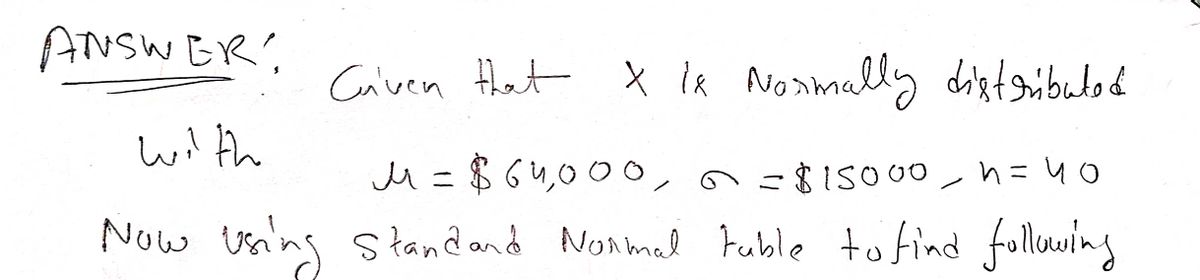 ANSWER:
Given that X is Normally distributed
with
μ = $64,000, σ = $15000, n = 40
Now using standard Normal table to find following